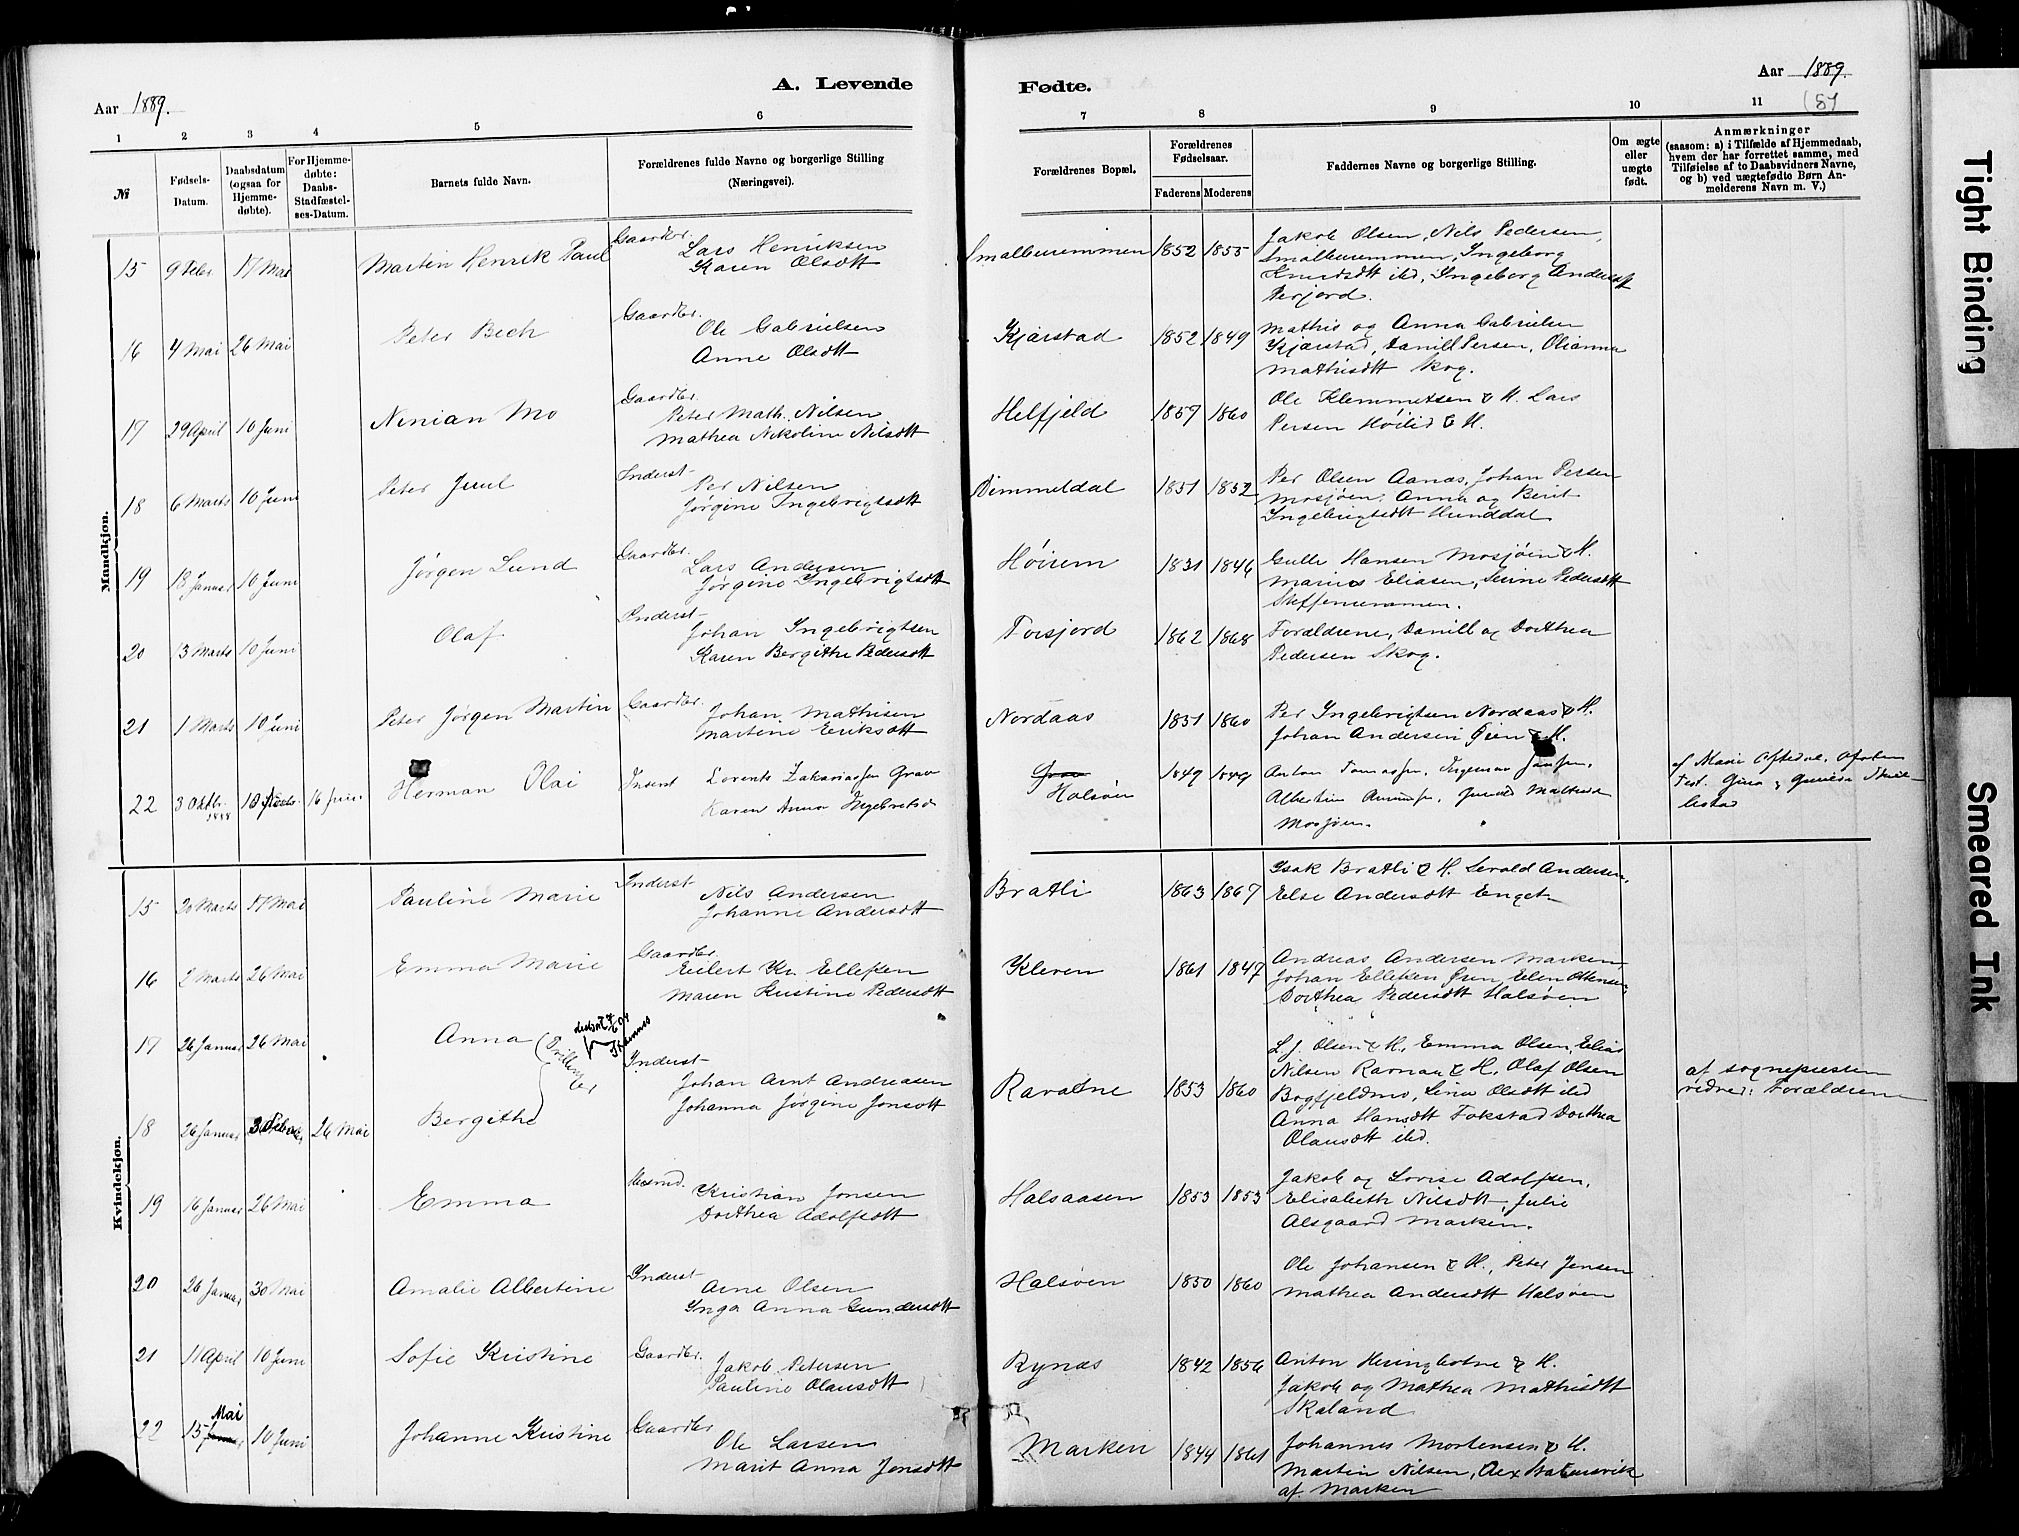 A. Levende Fødte.
Aar 1889.
Aar 1889.
(8)
1 2 3 4 5 6 7 8 9 10 11
№
Fødsels-
Datum.
Daabsdatum
(ogsaa for
Hjemme-
døbte).
For Hjemme-
døbte:
Daabs-
Stadfæstel-
ses-Datum.
Barnets fulde Navn.
Forældrenes fulde Navne og borgerlige Stilling
(Næringsvei).
Forældrenes Bopæl.
Forældrenes
Fødselsaar.
Faderens Moderens
Faddernes Navne og borgerlige Stilling.
Om ægte
eller
uægte
født.
Anmærkninger
(saasom: a) i Tilfælde af Hjemmedaab,
hvem der har forrettet samme, med
Tilføielse af to Daabsvidners Navne,
og b) ved uægtefødte Børn An-
melderens Navn m. V.)
Mandkjøn.
15 9 Febr 17 Mai Martin Henrik Paul Gaardbr. Lars Henriksen
Karen Olsdtt
Smalburemmen 1852 1855 Jakob Olsen, Nils Pedersen,
Smalburemmen, Ingeborg
Knudsdtt ibd, Ingeborg Andersdtt
Perjord.
16 4 Mai 26 Mai Peter Bech Gaardbr. Ole Gabrielsen
Anne Olsdtt
Kjærstad 1852 1849 Mathis og Anna Gabrielsen
Kjærstad, Daniel Persen, Olianna
Mathisdtt Skog.
17 29 April 10 Juni Ninian Mo Gaardbr. Peter Math. Nilsen
Mathea Nikoline Nilsdtt
Helfjeld 1859 1860 Ole Klemmetsen & H. Lars
Persen Høilid & H.
18 6 Marts 10 Juni Peter Juul Inderst Per Nilsen
Jørgine Ingebrigtsdtt
Dimmeldal 1851 1852 Per Olsen Aanas, Johan Persen
Mosjøen, Anna og Berit
Ingebrigtsdtt Hunddal
19 18 Januar 10 Juni Jørgen Lund Gaardbr. Lars Andersen
Jørgine Ingebrigtsdtt
Høirem 1831 1846 Gulle Hansen Mosjøen & H.
Marius Eliasen, Serine Pedersdtt
Steffenremmen.
20 13 Marts 10 Juni Olaf Inderst Johan Ingebrigtsen
Karen Bergithe Pedersdtt
Forsjord 1862 1868 Forældrene, Daniel og Dorthea
Pedersen Skog.
21 1 Marts 10 Juni Peter Jørgen Martin Gaardbr. Johan Mathisen
Martine Eriksdtt
Nordaas 1851 1860 Per Ingebrigtsen Nordaas & H.
Johan Andersen Øien & H.
22 3 Oktbr. 1888 16 Juni Herman Olai Inderst Lorents Zakariassen Grav
Karen Anna Ingebretsd
Grav
Halsøen 1849 1849 Anton
Albertine
Mosjøen.
af Marie
Test. Gina
Kvindekjøn.
15 20 Marts 17 Mai Pauline Marie Inderst Nils Andersen
Johanne Andersdtt
Bratli 1863 1867 Isak Bratli & H. Sevald Andersen,
Else Andersdtt Enget
16 2 Marts 26 Mai Emma Marie Gaardbr. Eilert Kr. Ellefsen
Maren Kristine Pedersdtt
Kleven 1861 1847 Andreas Andersen Marken,
Johan Ellefsen Øien, Elen Ottensen,
Dorthea Pedersdtt Halsøen
17 26 Januar 26 Mai Anna (Trillinger
Inderst Johan Arnt Andreasen
Johanna Jørgine Jonsdtt
Ravatne 1853 1860
L. J. Olsen & H, Emma Olsen, Elias
Nilsen Ravnaa & H, Olaf Olsen
Bogfjeldmo, Lina Olsdtt ibd
Anna Hansdtt Fokstad Dorthea
Olausdtt ibd.
af sognepresten
vidner: Forældrene
18 26 Januar 26 Mai Bergithe
19 16 Januar 26 Mai Emma Husmd. Kristian Jonsen
Dorthea Adolfsdtt
Halsaasen 1853 1853 Jakob og Lovise Adolfsen,
Elisabeth Nilsdtt, Julie
Alsgaard Marken.
20 26 Januar 30 Mai Amalie Albertine Inderst Arne Olsen
Inga Anna Gundersdtt
Halsøen 1850 1860 Ole Johansen & H., Peter Jensen
Mathea Andersdtt Halsøen
21 11 April 10 Juni Sofie Kristine Gaardbr. Jakob Petersen
Pauline Olausdtt
Rynes 1842 1856 Anton Heringbotne & H.
Jakob og Mathea Mathisdtt
Skaland
22 15 Mai 10 Juni Johanne Kristine Gaardbr Ole Larsen
Marit Anna Jonsdtt
Marken 1844 1861 Johannes Mortensen & H.
Martin Nilsen,
af Marken
Tight Binding
Smeared Ink